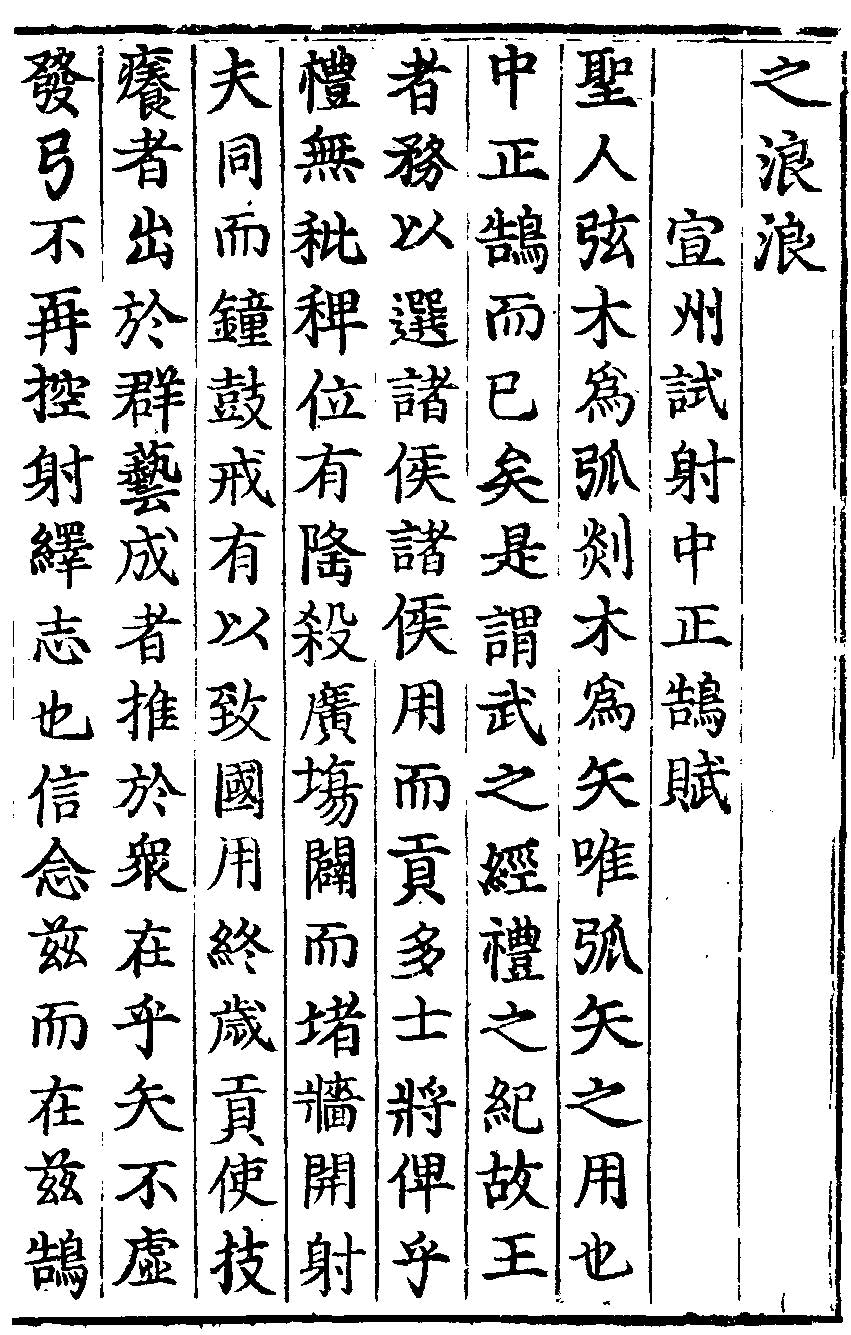 之浪浪
宣州試射中正鵠賦
聖人弦木爲弧剡木爲矢唯弧矢之用也
中正鵠而已矣是謂武之經禮之紀故王
者務以選諸侯諸侯用而貢多士將俾乎
禮無秕稗位有隆殺廣塲闢而堵牆開射
夫同而鐘鼓戒有以致國用終歲貢使技
癢者出於群藝成者推於衆在乎矢不虛
發弓不再控射繹志也信念茲而在茲鵠